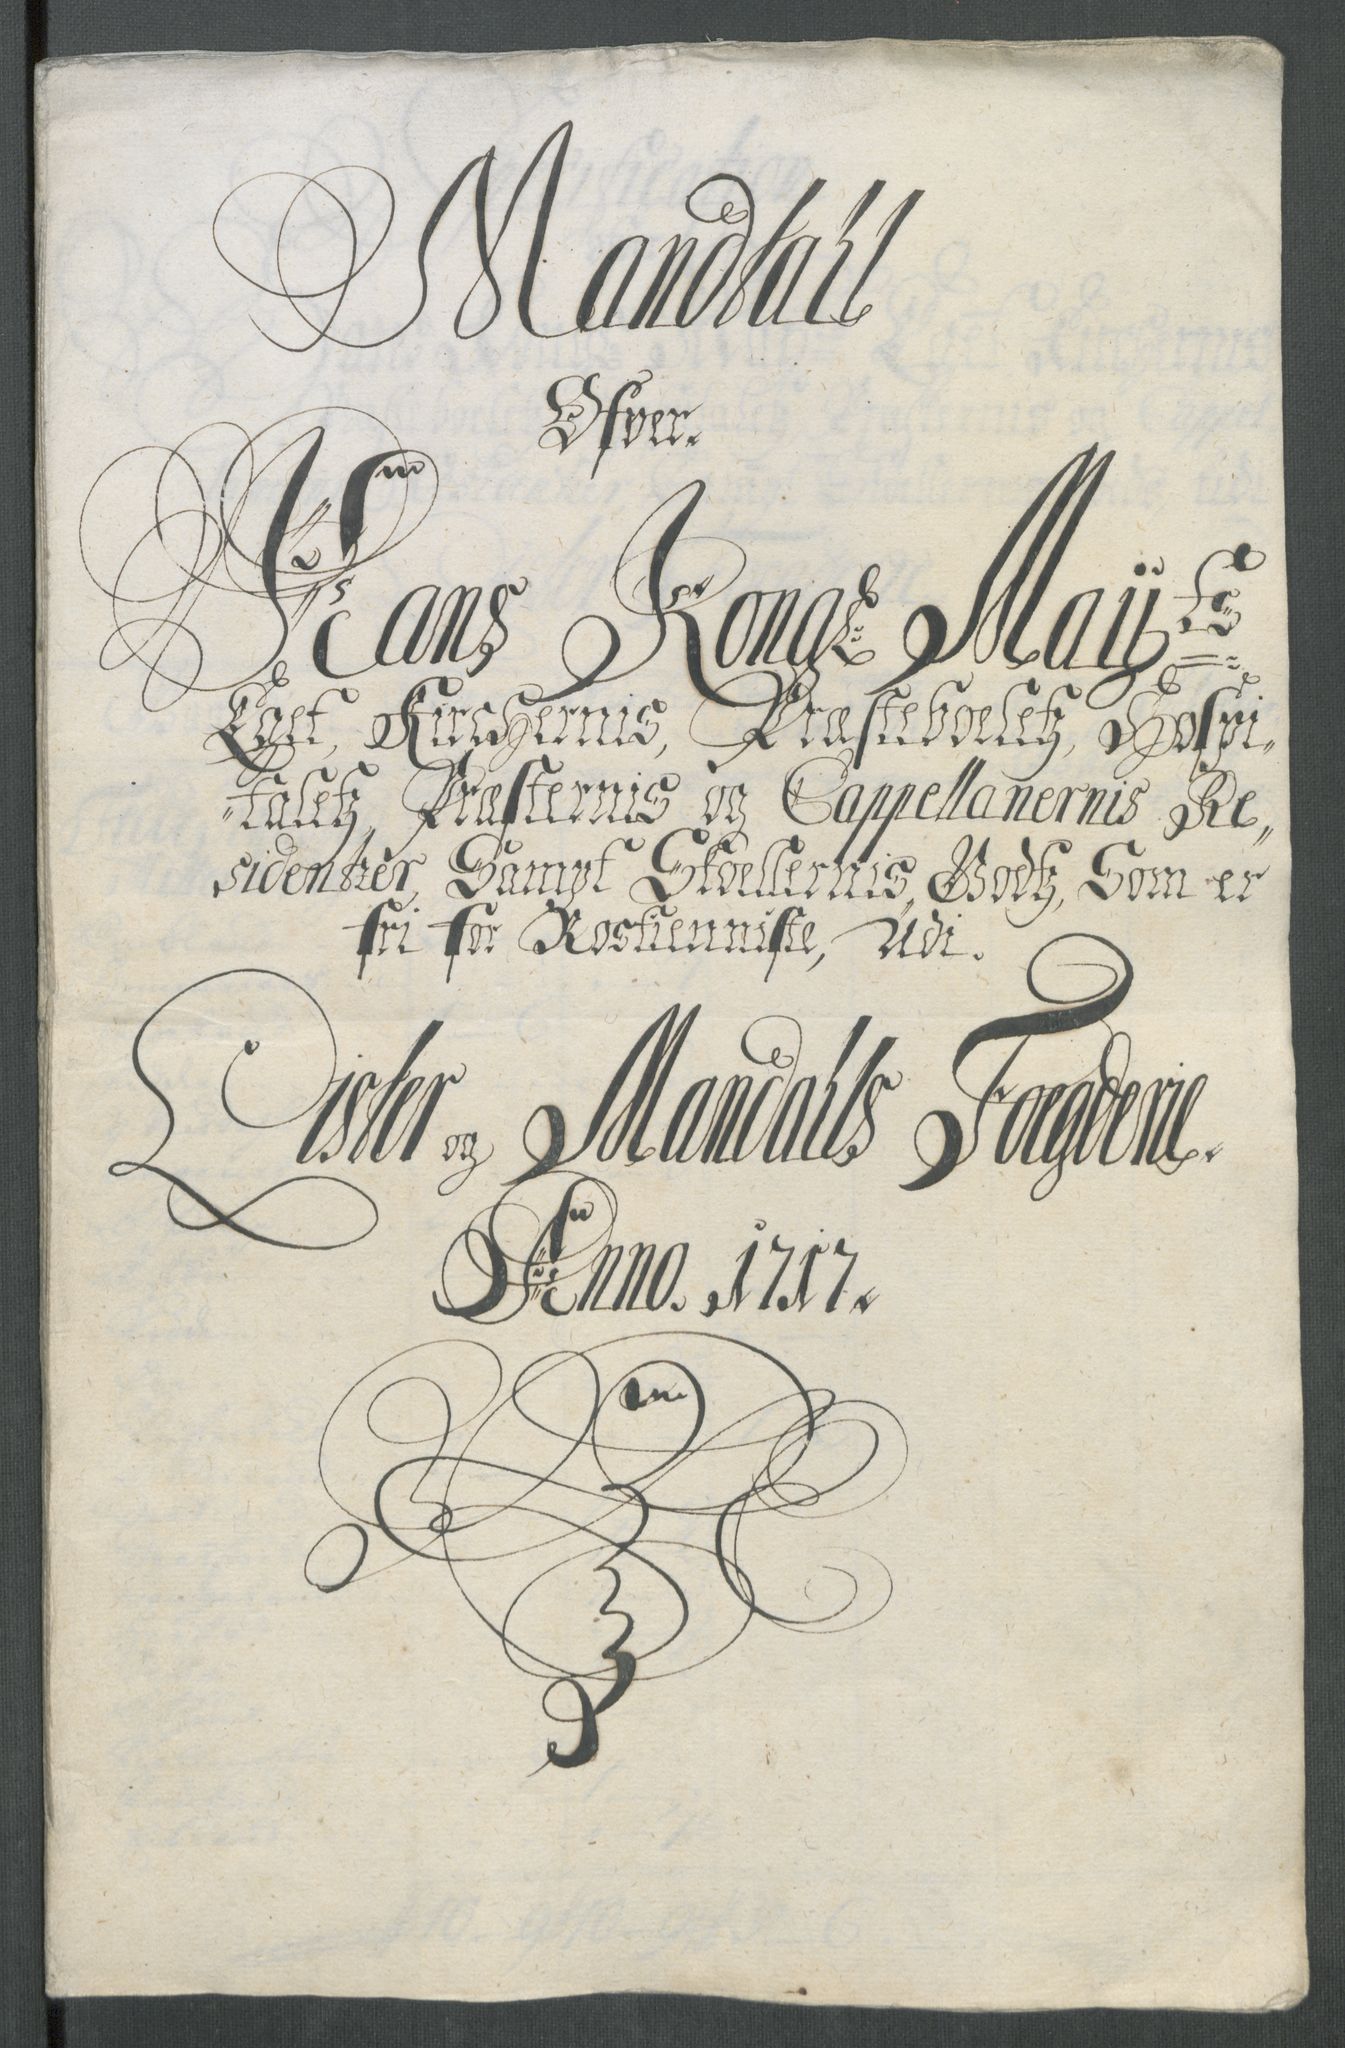 Mandtall
Ofver.
Hans Kongl: Maij:ts
Eget, Kirchernis, Præsteboeletz, Hospi„
„taletz, Præsternis og Cappellanernis Re„
sidentzer, Sampt Skoellernis, Godtz, Som er
fri for Rostienniste, Udi.
Lister og Mandalls Foegderie.
Anno. 1717.